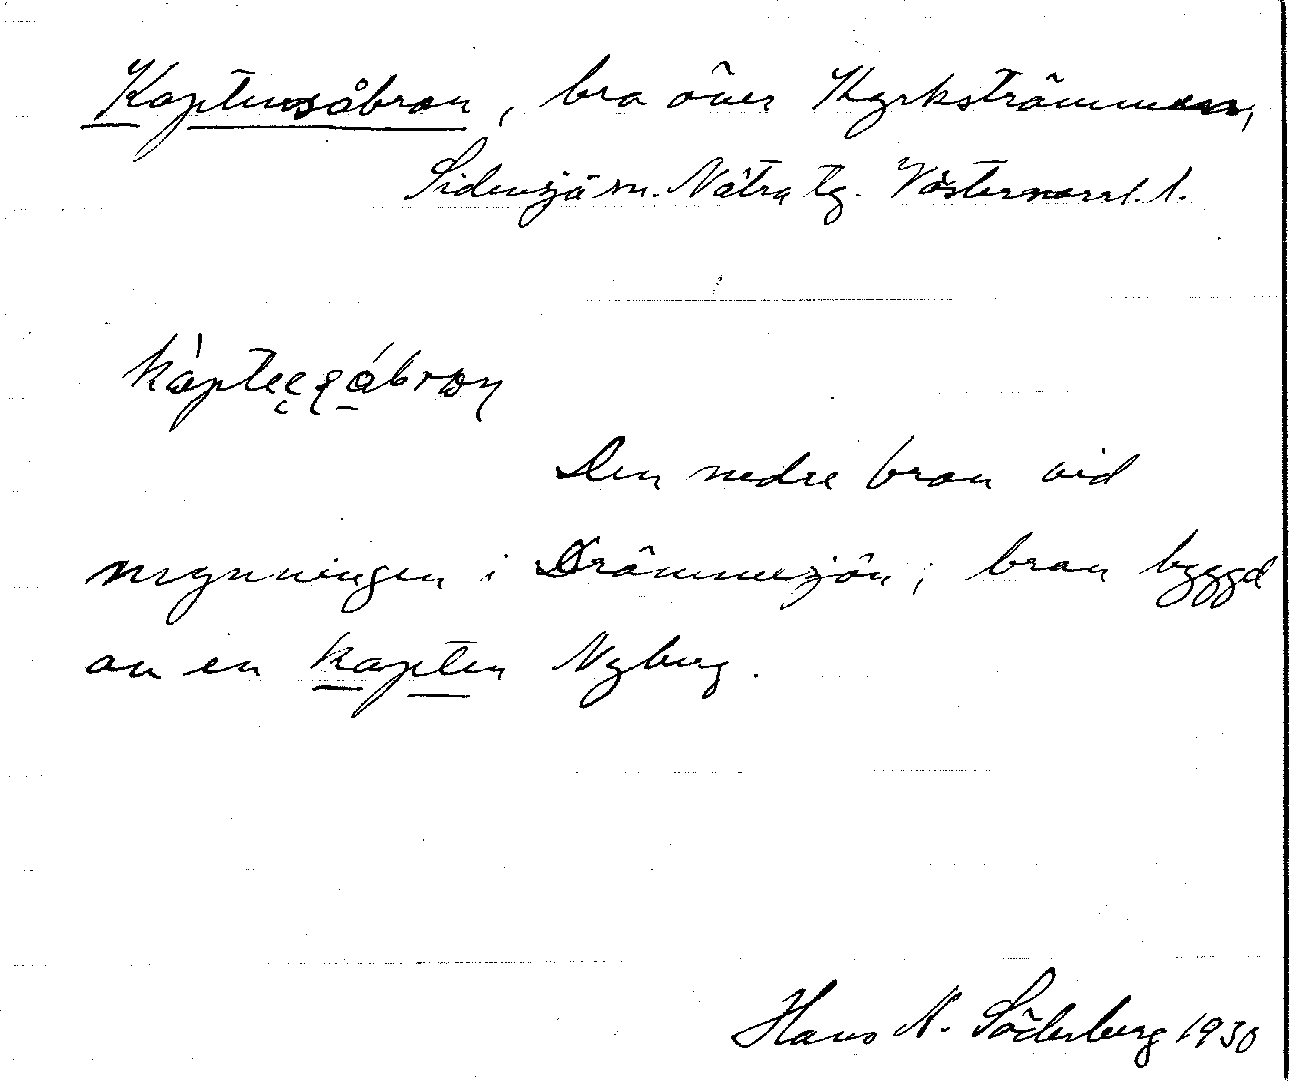 Kaptensåbron, bro över Kyrkströmmen,
Sidensjö sn. Nätra tg. Västernorrl. l.
Den nedre bron vid
mynningen i Drömmesjön; bron byggd
av en kapten Nyberg.
Hans N. Söderberg 1930